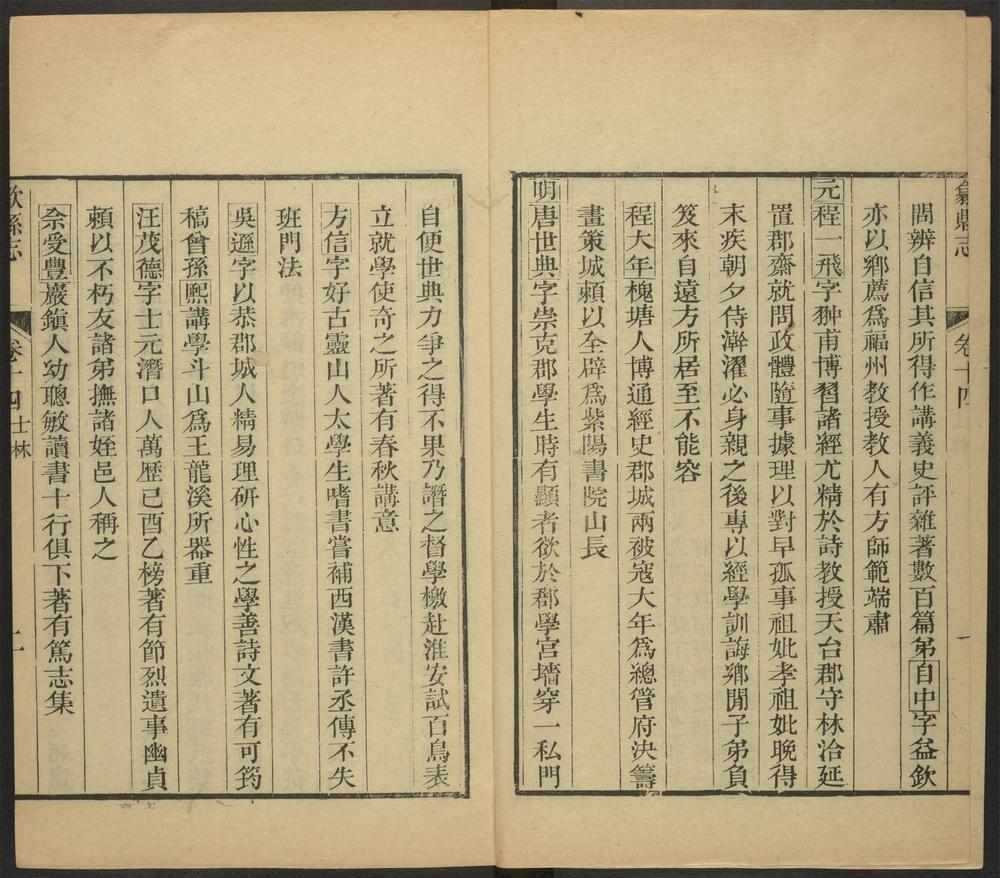 歙縣志
卷十四
一
問辨自信其所得作講義史評雜著數百篇弟自中字益欽
亦以鄉薦爲福州教授教人有方師範端肅
元程一飛字翀甫博習諸經尤精於詩教授天台郡守林洽延
置郡齋就問政體隨事據理以對早孤事祖妣孝祖妣晚得
末疾朝夕侍澣濯必身親之後專以經學訓誨鄉閒子弟負
笈來自遠方所居至不能容
程大年槐塘人博通經史郡城兩被寇大年爲總管府決籌
畫策城賴以全辟爲紫陽書院山長
明唐世典字崇克郡學生時有顯者欲於郡學宮墻穿一私門
自便世典力爭之得不果乃譖之督學檄赴淮安試百鳥表
立就學使奇之所著有春秋講意
方信字好古靈山人太學生嗜書嘗補西漢書許丞傳不失
班門法
吳遜字以恭郡城人精易理研心性之學善詩文著有可筠
稿曾孫熙講學斗山爲王龍溪所器重
汪茂德字士元潛口人萬歷己酉乙榜著有節烈遺事幽貞
賴以不朽友諸弟撫諸姪邑人稱之
佘受豐巖鎭人幼聰敏讀書十行俱下著有篤志集
歙縣志
卷十四
士林